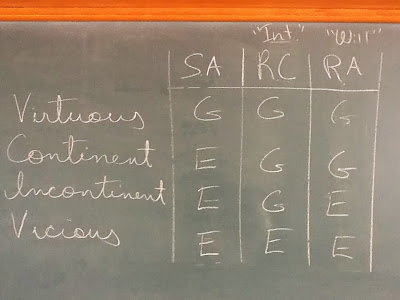 "Int." "Will"
SA RC RA
Virtuous G G G
Continent E G G
Incontinent E G E
Vicious E E E